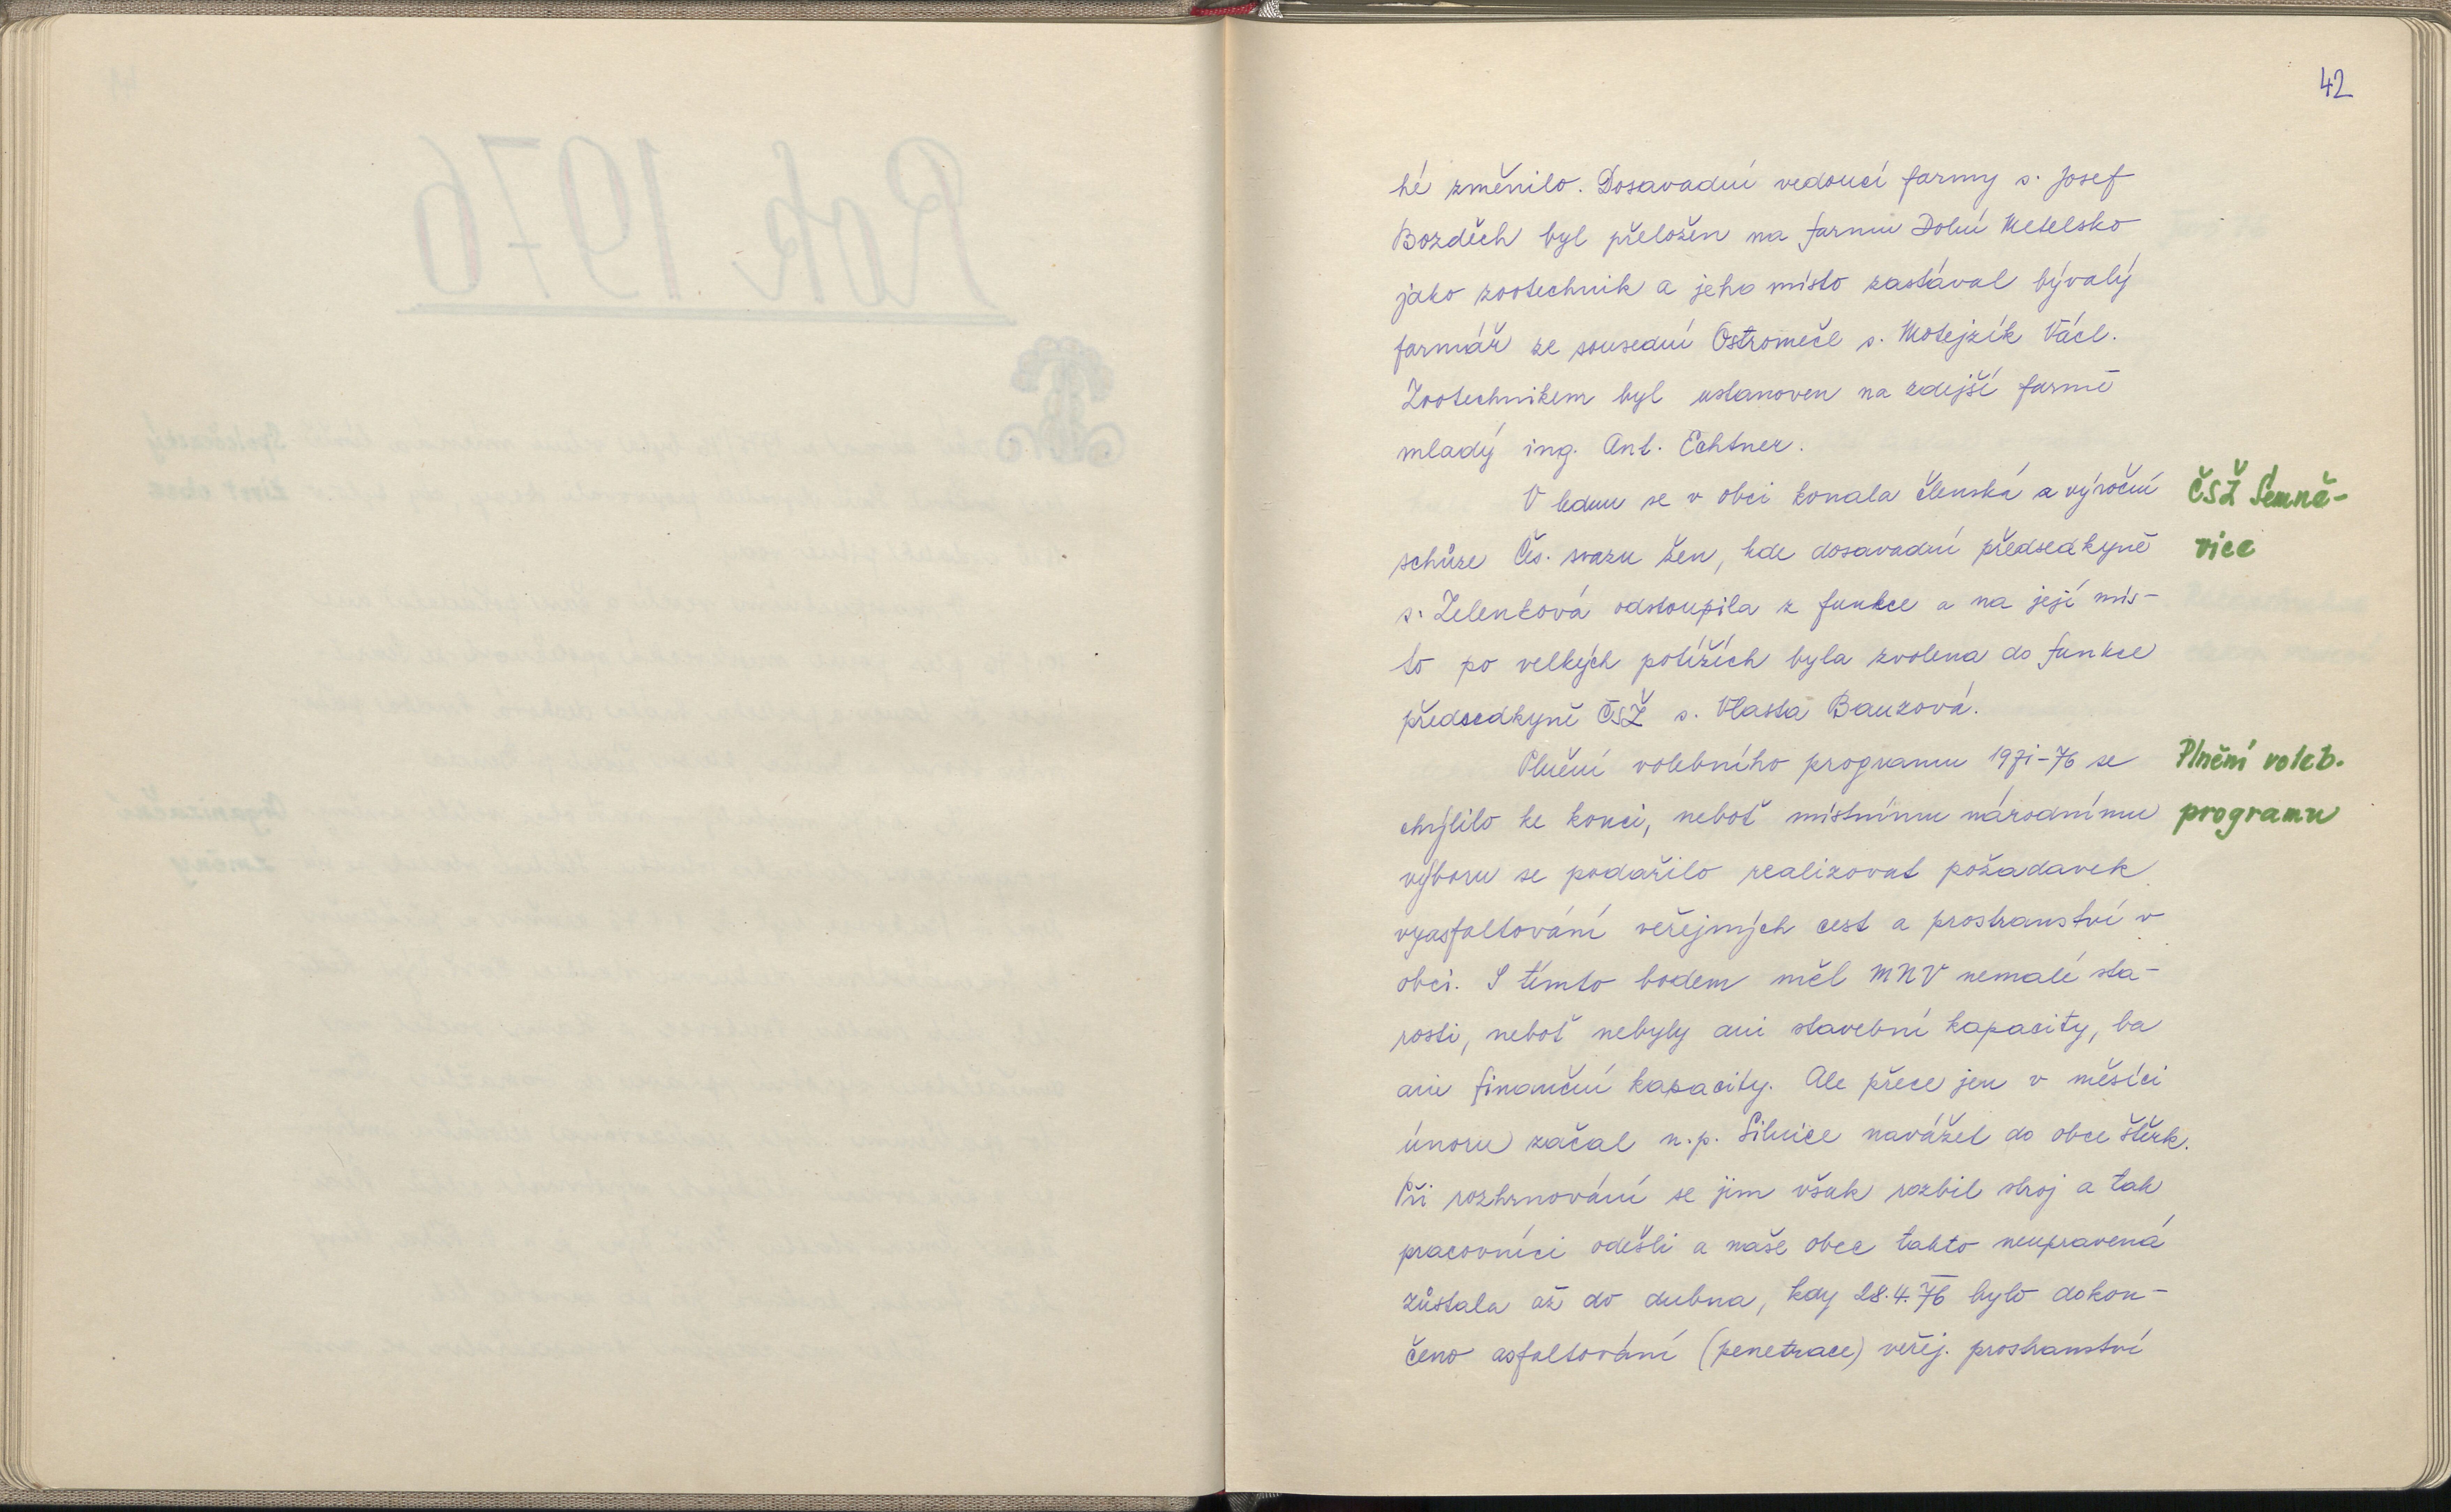 42
hé změnilo. Dosavadní vedoucí farmy s. Josef
Bozděch byl přeložen na farmu Dolní Metelsko
jako zootechnik a jeho místo zastával bývalý
farmář ze sousední Ostromeče s. Motejzík Václ.
Zootechnikem byl ustanoven na zdejší farmě
mladý ing. Ant. Echtner.
V lednu se v obci konala členská a výroční
ČSŽ Semně-
schůze Čes. svazu žen, kde dosavadní předsedkyně
vice
s. Zelenková odstoupila z funkce a na její mís-
to po velkých potížích byla zvolena do funkce
předsedkyně ČSŽ s. Vlasta Bauzová.
Plnění volebního programu 1971-76 se
Plnění voleb.
chýlilo ke konci, neboť místnímu národnímu
programu
výboru se podařilo realizovat požadavek
vyasfaltování veřejných cest a prostranství v
obci. S tímto bodem měl MNV nemalé sta-
rosti, neboť nebyly ani stavební kapacity, ba
ani finanční kapacity. Ale přece jen v měsíci
únoru začal n.p. Silnice navážet do obce štěrk.
Při rozhrnování se jim však rozbil stroj a tak
pracovníci odešli a naše obec takto neupravená
zůstala až do dubna, kdy 28.4.76 bylo dokon-
čeno asfaltování (penetrace) veřej. prostranství